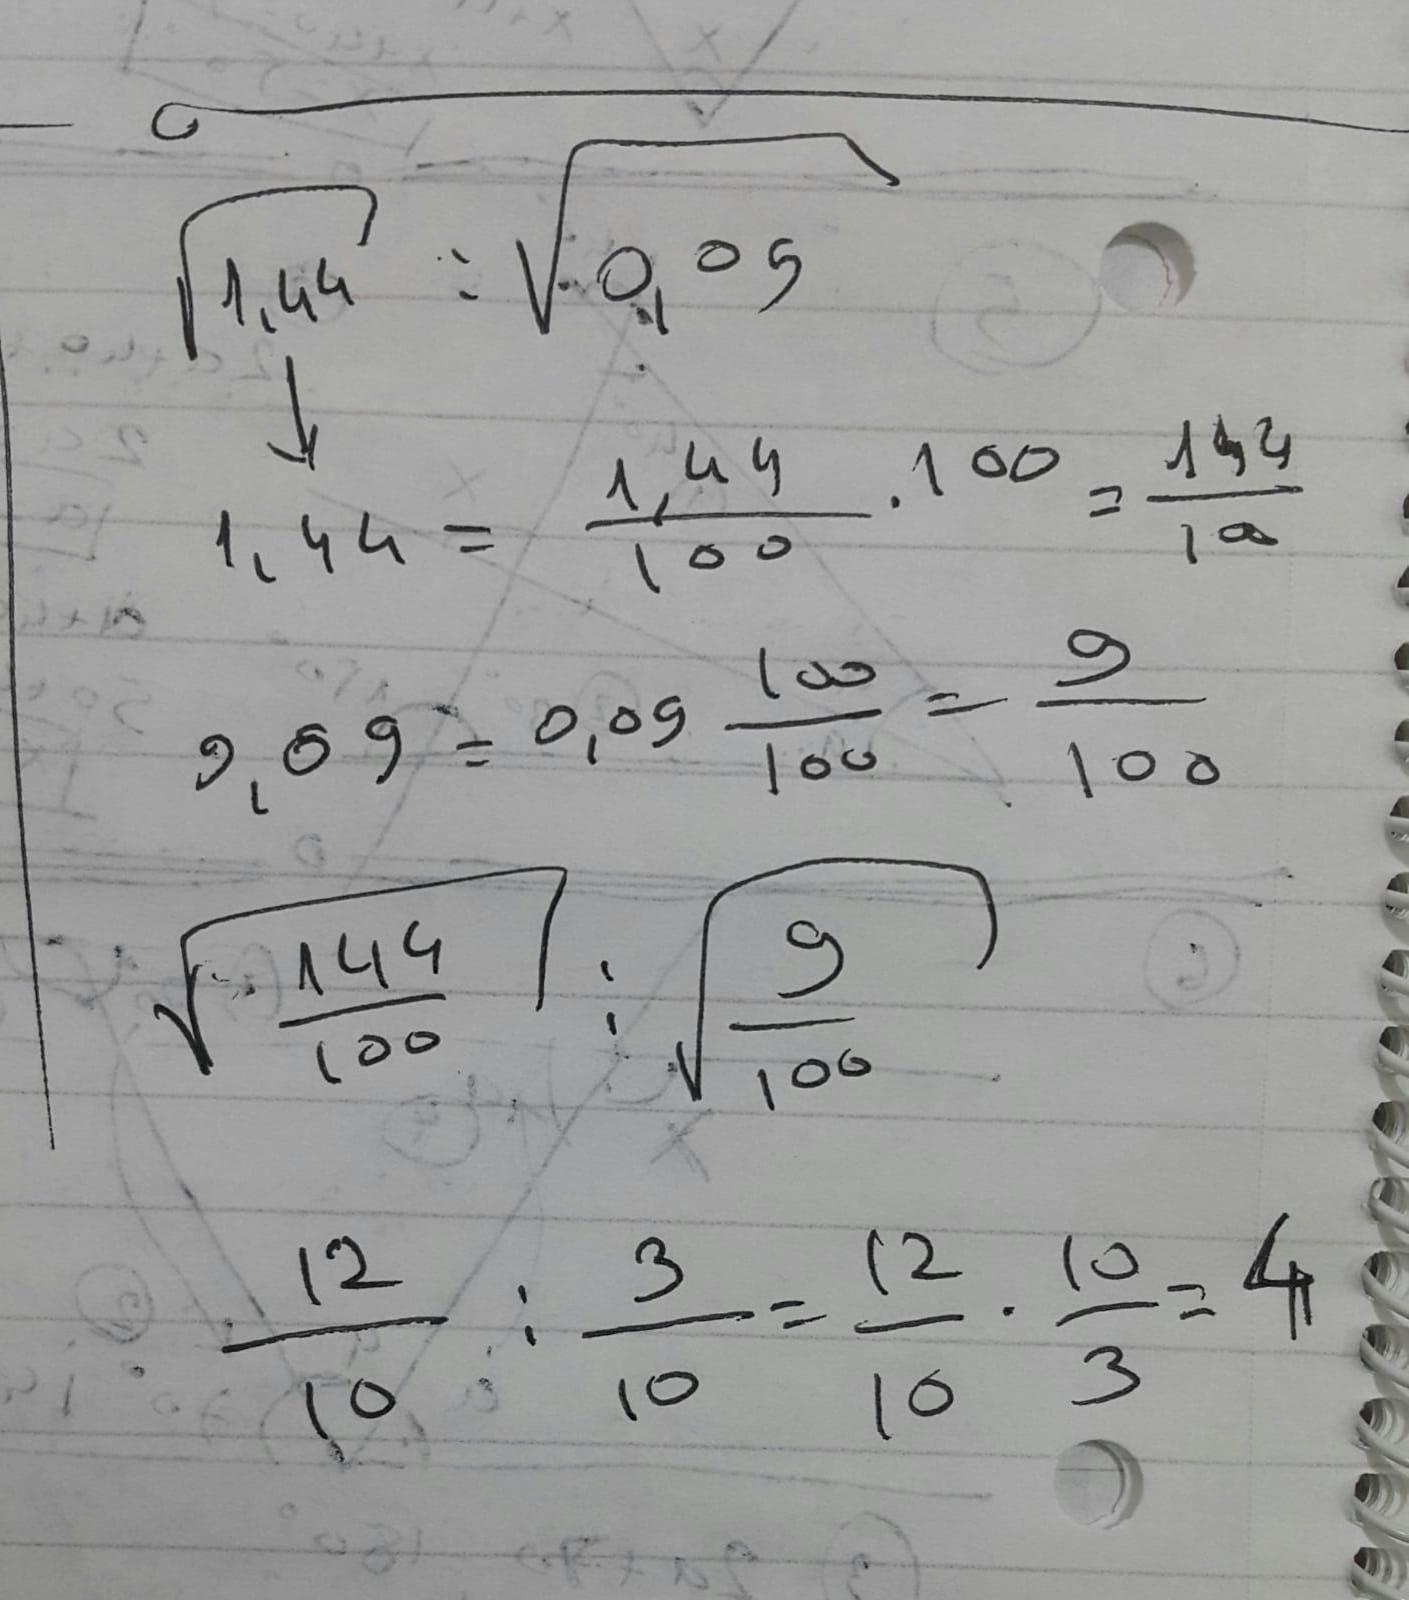 √1,44 : √0,09
↓
1,44 = 1,44/100 . 100 = 144/100
0,09 = 0,09 100/100 = 9/100
√(144/100) : √(9/100)
12/10 : 3/10 = 12/10 . 10/3 = 4